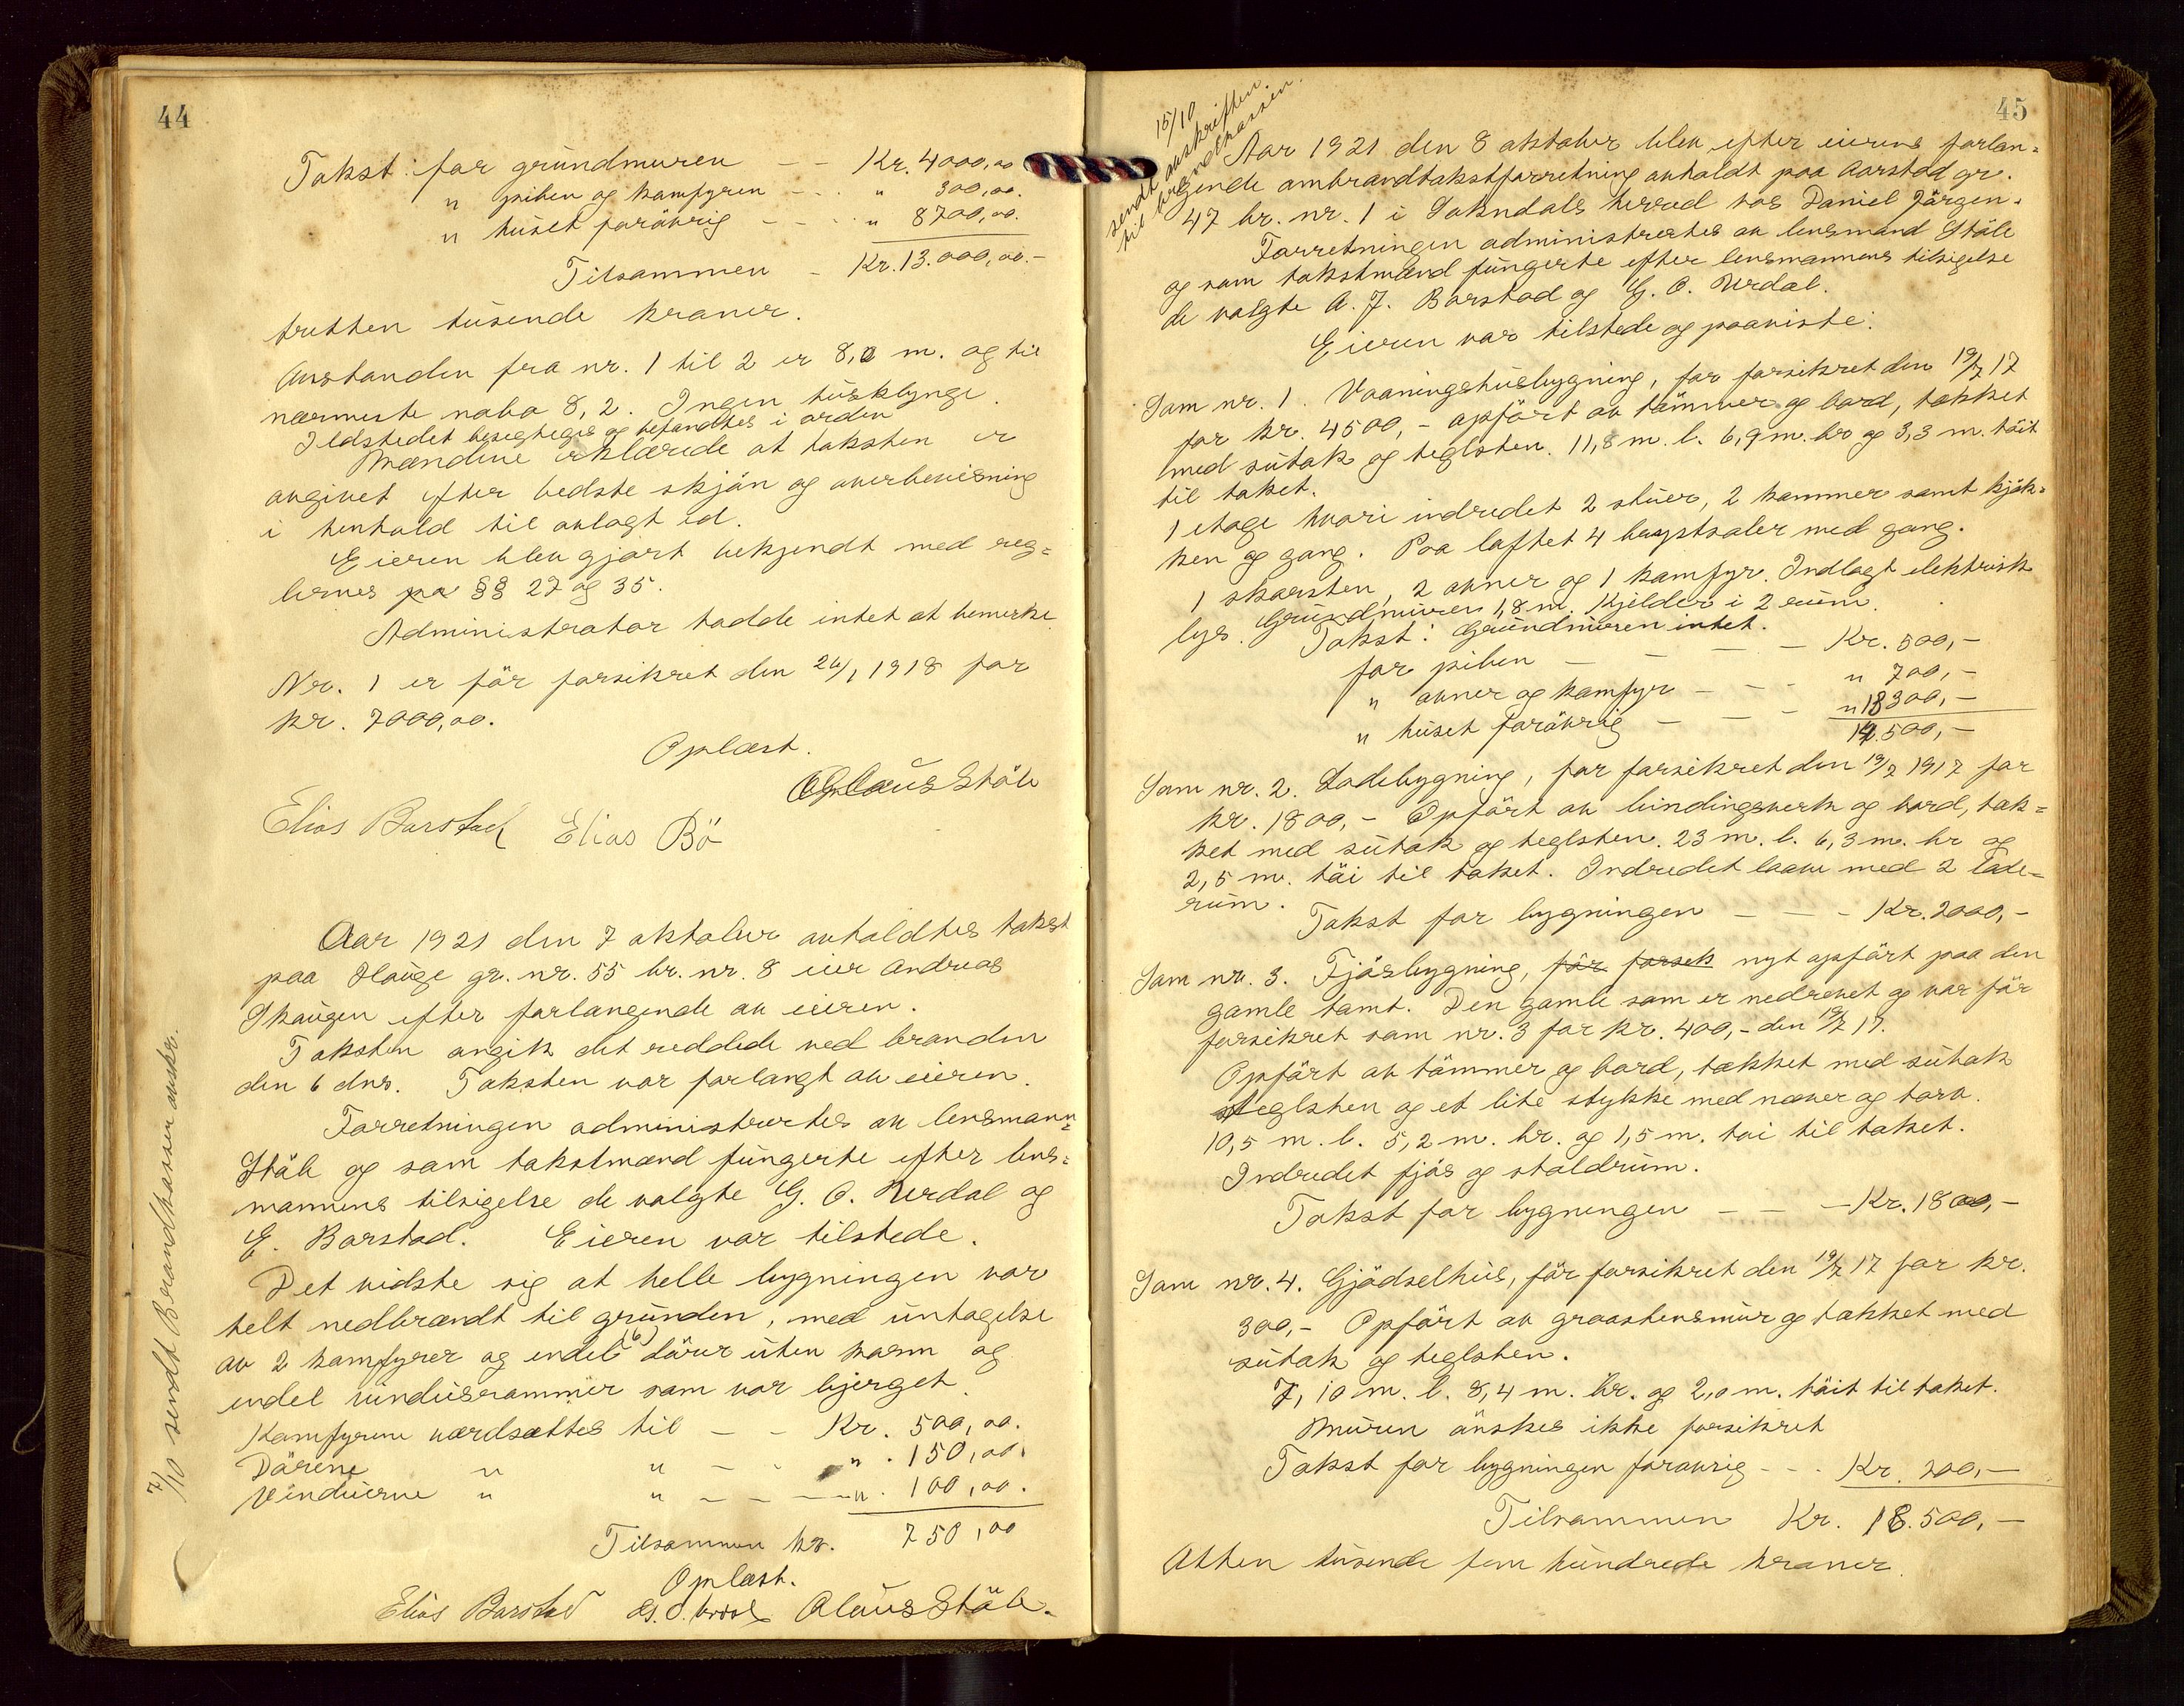 44
Takst: for grundmuren — — Kr. 4000,00
" piben og komfyren — — " 300,00.
" huset forövrig — — " 8700,00.
Tilsammen — Kr. 13.000,00.—
tretten tusende kroner.
Avstanden fra nr. 1 til 2 er 8,0 m. og til
nærmeste nabo 8,2. Ingen husklynge.
Ildstedet besigtiges og befandtes i orden
Mændene erklærede at taksten er
avgivet efter bedste skjön og overbevisning
i henhold til avlagt ed.
Eieren blev gjort bekjendt med reg=
lernes pa §§ 27 og 35.
Administrator hadde intet at bemerke.
Nr. 1 er för forsikret den 26/1 1918 for
kr. 7000,00.
Oplæst.
Olaus Ståle
Elias Barstad Elias Bö
Aar 1921 den 7 oktober avholdtes takst
paa Hauge gr. nr. 55 br. nr. 8 eier Andreas
Skaugen efter forlangende av eieren.
Taksten angik det reddede ved branden
den 6 dns. Taksten var forlangt av eieren.
Forretningen administrertes av lensmann
Ståle og som takstmænd fungerte efter lens=
mannens tilsigelse de valgte G. O. Urdal og
E. Barstad. Eieren var tilstede.
Det vidste sig at helle bygningen var
helt nedbrændt til grunden, med untagelse
av 2 komfyrer og endel (6) dörer uten karm og
endel vindusrammer som var bjerget.
Komfyrene værdsættes til — — Kr. 500,00.
Dörene " " — — " . 150,00.
Vinduerne " " — — — " . 100,00.
Tilsammen kr. 750,00
Oplæst.
Elias Barstad Gs. O. Urdal Olaus Ståle.
7/10 sendt Brandkassen avskr.
45
15/10
sendt avskriften
til brandkassen.
Aar 1921 den 8 oktober blev efter eierens forlan=
gende ombrandtakstforretning avholdt paa Aarstad gr.
47 br. nr. 1 i Sokndals herred hos Daniel Jörgen.
Forretningen administrertes av lensmand Ståle
og som takstmænd fungerte efter lensmannens tilsigelse
de valgte A. J. Barstad og G. O. Urdal.
Eieren var tilstede og paaviste:
Som nr. 1. Vaaningshusbygning, för forsikret den 19/7 17
for kr. 4500,- opfört av tömmer og bord, tækket
med sutak og teglsten. 11,8 m. l. 6,9 m. br og 3,3 m. höit
til taket.
1 etage hvori indredet 2 stuer, 2 kammer samt kjök=
ken og gang. Paa loftet 4 brystsaler med gang.
1 skorsten, 2 ovner og 1 komfyr. Indlagt elektrisk
lys. Grundmuren 1,8 m. Kjelder i 2 rum.
Takst: Grundmuren intet.
for piben — — — — Kr. 500,—
" ovner og komfyr — — — " 700,—
" huset forövrig — — — " 13300,—
14.500,—
Som nr. 2. Ladebygning, för forsikret den 19/7 1917 for
kr. 1800,- Opfört av bindingsverk og bord, tæk=
ket med sutak og teglsten. 23 m. l. 6,3 m. br og
2,5 m. höi til taket. Indredet laave med 2 lade=
rum.
Takst for bygningen — — — Kr. 2000,—
Som nr. 3. Fjösbygning, för forsek nyt opfört paa den
gamle tomt. Den gamle som er nedrevet og var för
forsikret som nr. 3 for kr. 400,- den 19/7 17.
Opfört av tömmer og bord, tækket med sutak
teglsten og et lite stykke med næver og torv.
10,5 m. l. 5,2 m. br. og 1,5 m. höi til taket.
Indredet fjös og staldrum.
Takst for bygningen — — — Kr. 1800,—
Som nr. 4. Gjödselhus, för forsikret den 19/7 17 for kr.
300,- Opfört av graastensmur og tækket med
sutak og teglsten.
7,10 m. l. 8,4 m. br. og 2,0 m. höit til taket.
Muren önskes ikke forsikret
Takst for bygningen forövrig — — — Kr. 200,—
Tilsammen Kr. 18.500,—
Atten tusende fem hundrede kroner.